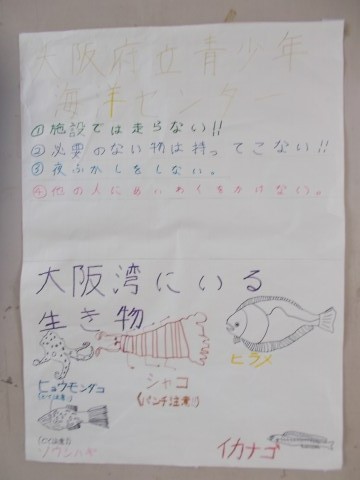 大阪府立青少年
海洋センター
①施設では走らない!!
②必要のない物は持ってこない!!
③夜ふかしをしない。
④他の人にめいわくをかけない。
大阪湾にいる
生き物
ヒョウモンダコ
シャコ
(パンチ注意!!)
ヒラメ
イカナゴ